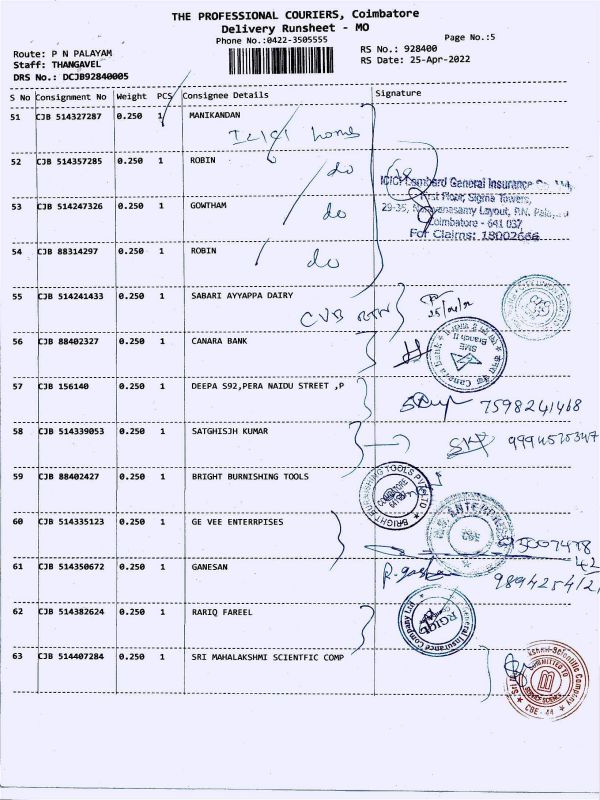 THE PROFESSIONAL COURIERS, Coimbatore
Delivery Runsheet - MO
Phone No.:0422-3505555
Page No.:5
Route: P N PALAYAM
RS No.: 928400
Staff: THANGAVEL
RS Date: 25-Apr-2022
DRS No.: DCJB92840005
S No Consignment No Weight PCS Consignee Details Signature
51 CJB 514327287 0.250 1 MANIKANDAN
ICICI home
52 CJB 514357285 0.250 1 ROBIN
do
ICICI Lombard General Insurance Co. Ltd.
First Floor, Sigma Towers,
53 CJB 514247326 0.250 1 GOWTHAM
29-35, Narayanasamy Layout, P.N. Pala
do
Coimbatore - 641 037
For Claims: 18002666
54 CJB 88314297 0.250 1 ROBIN
do
55 CJB 514241433 0.250 1 SABARI AYYAPPA DAIRY
CVB RTN
56 CJB 88402327 0.250 1 CANARA BANK
Canara Bank
SME
Branch II
57 CJB 156140 0.250 1 DEEPA S92,PERA NAIDU STREET ,P
7598241468
58 CJB 514339053 0.250 1 SATGHISJH KUMAR
59 CJB 88402427 0.250 1 BRIGHT BURNISHING TOOLS
BRIGHT BURNISHING TOOLS PVT LTD
60 CJB 514335123 0.250 1 GE VEE ENTERRPISES
61 CJB 514350672 0.250 1 GANESAN
62 CJB 514382624 0.250 1 RARIQ FAREEL
General Insurance Company Ltd
63 CJB 514407284 0.250 1 SRI MAHALAKSHMI SCIENTFIC COMP
Scientific Company
COMMITTED TO
CBE - 44